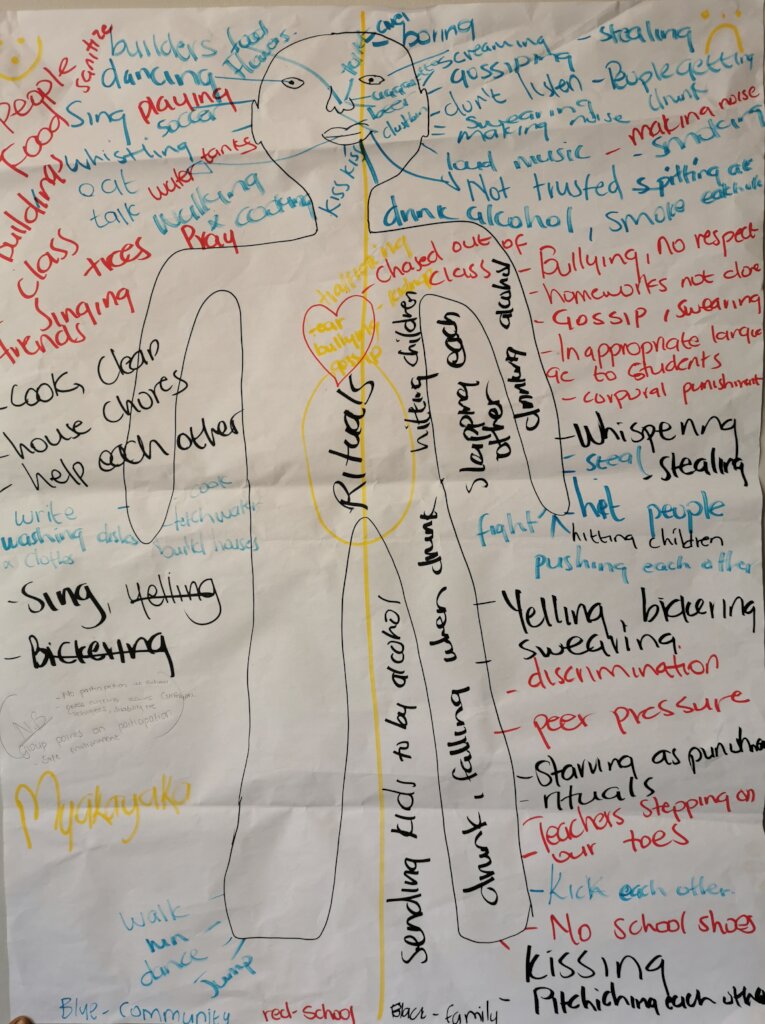 People
sanitize
Food
buildings
class
trees
Pray
Singing
friends
builders
food
flowers
dancing
Sing
playing
soccer
whistling
eat
water tanks
talk
walking
x cooking
kiss kiss
- boring
screaming
- stealing
gossiping
- don't listen
- People getting
drunk
- swearing
making noise
- making noise
- smoking
loud music
Not trusted
spitting at
each other
drink alcohol, smoke
- Chased out of
class
- ear
bullying
gossip
- Bullying, No respect
- homeworks not done
- Gossip, swearing
- Inappropriate langu
age to students
- corporal punishment
- cook, clean
- house chores
- help each other
write
washing dishes
x clothes
- cook
fetch water
build houses
Rituals
hitting children
slapping each
other
drinking alcohol
- Whispering
- steal
- stealing
fight
- hit people
hitting children
pushing each other
- Sing, yelling
- Bickering
- Yelling, bickering
swearing
- discrimination
- peer pressure
- Starving as punishm
- rituals
- Teachers stepping on
our toes
- Kick each other
- No school shoes
kissing
Pitchiching each other
Sending kids to by alcohol
drunk, falling when drunk
NS
- No participation at school
group points on participation
- Safe environment
Myakayaka
walk
run
dance
Jump
Blue - community
red - school
Black - family